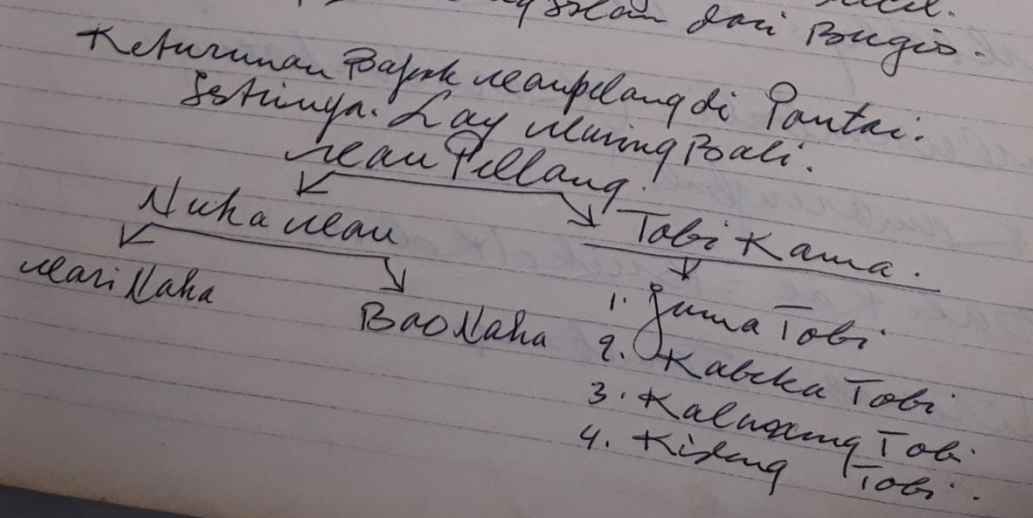 dari Bugis.
Keturunan Bapak Maupelang di Pantai.
Istrinya. Lay Maring Bali.
Mau Pellang.
Nuha Mau
Tobi Kama.
Mari Naha
Bao Naha
1. Juma Tobi
2. Kabeka Tobi
3. Tobi
4. Tobi.